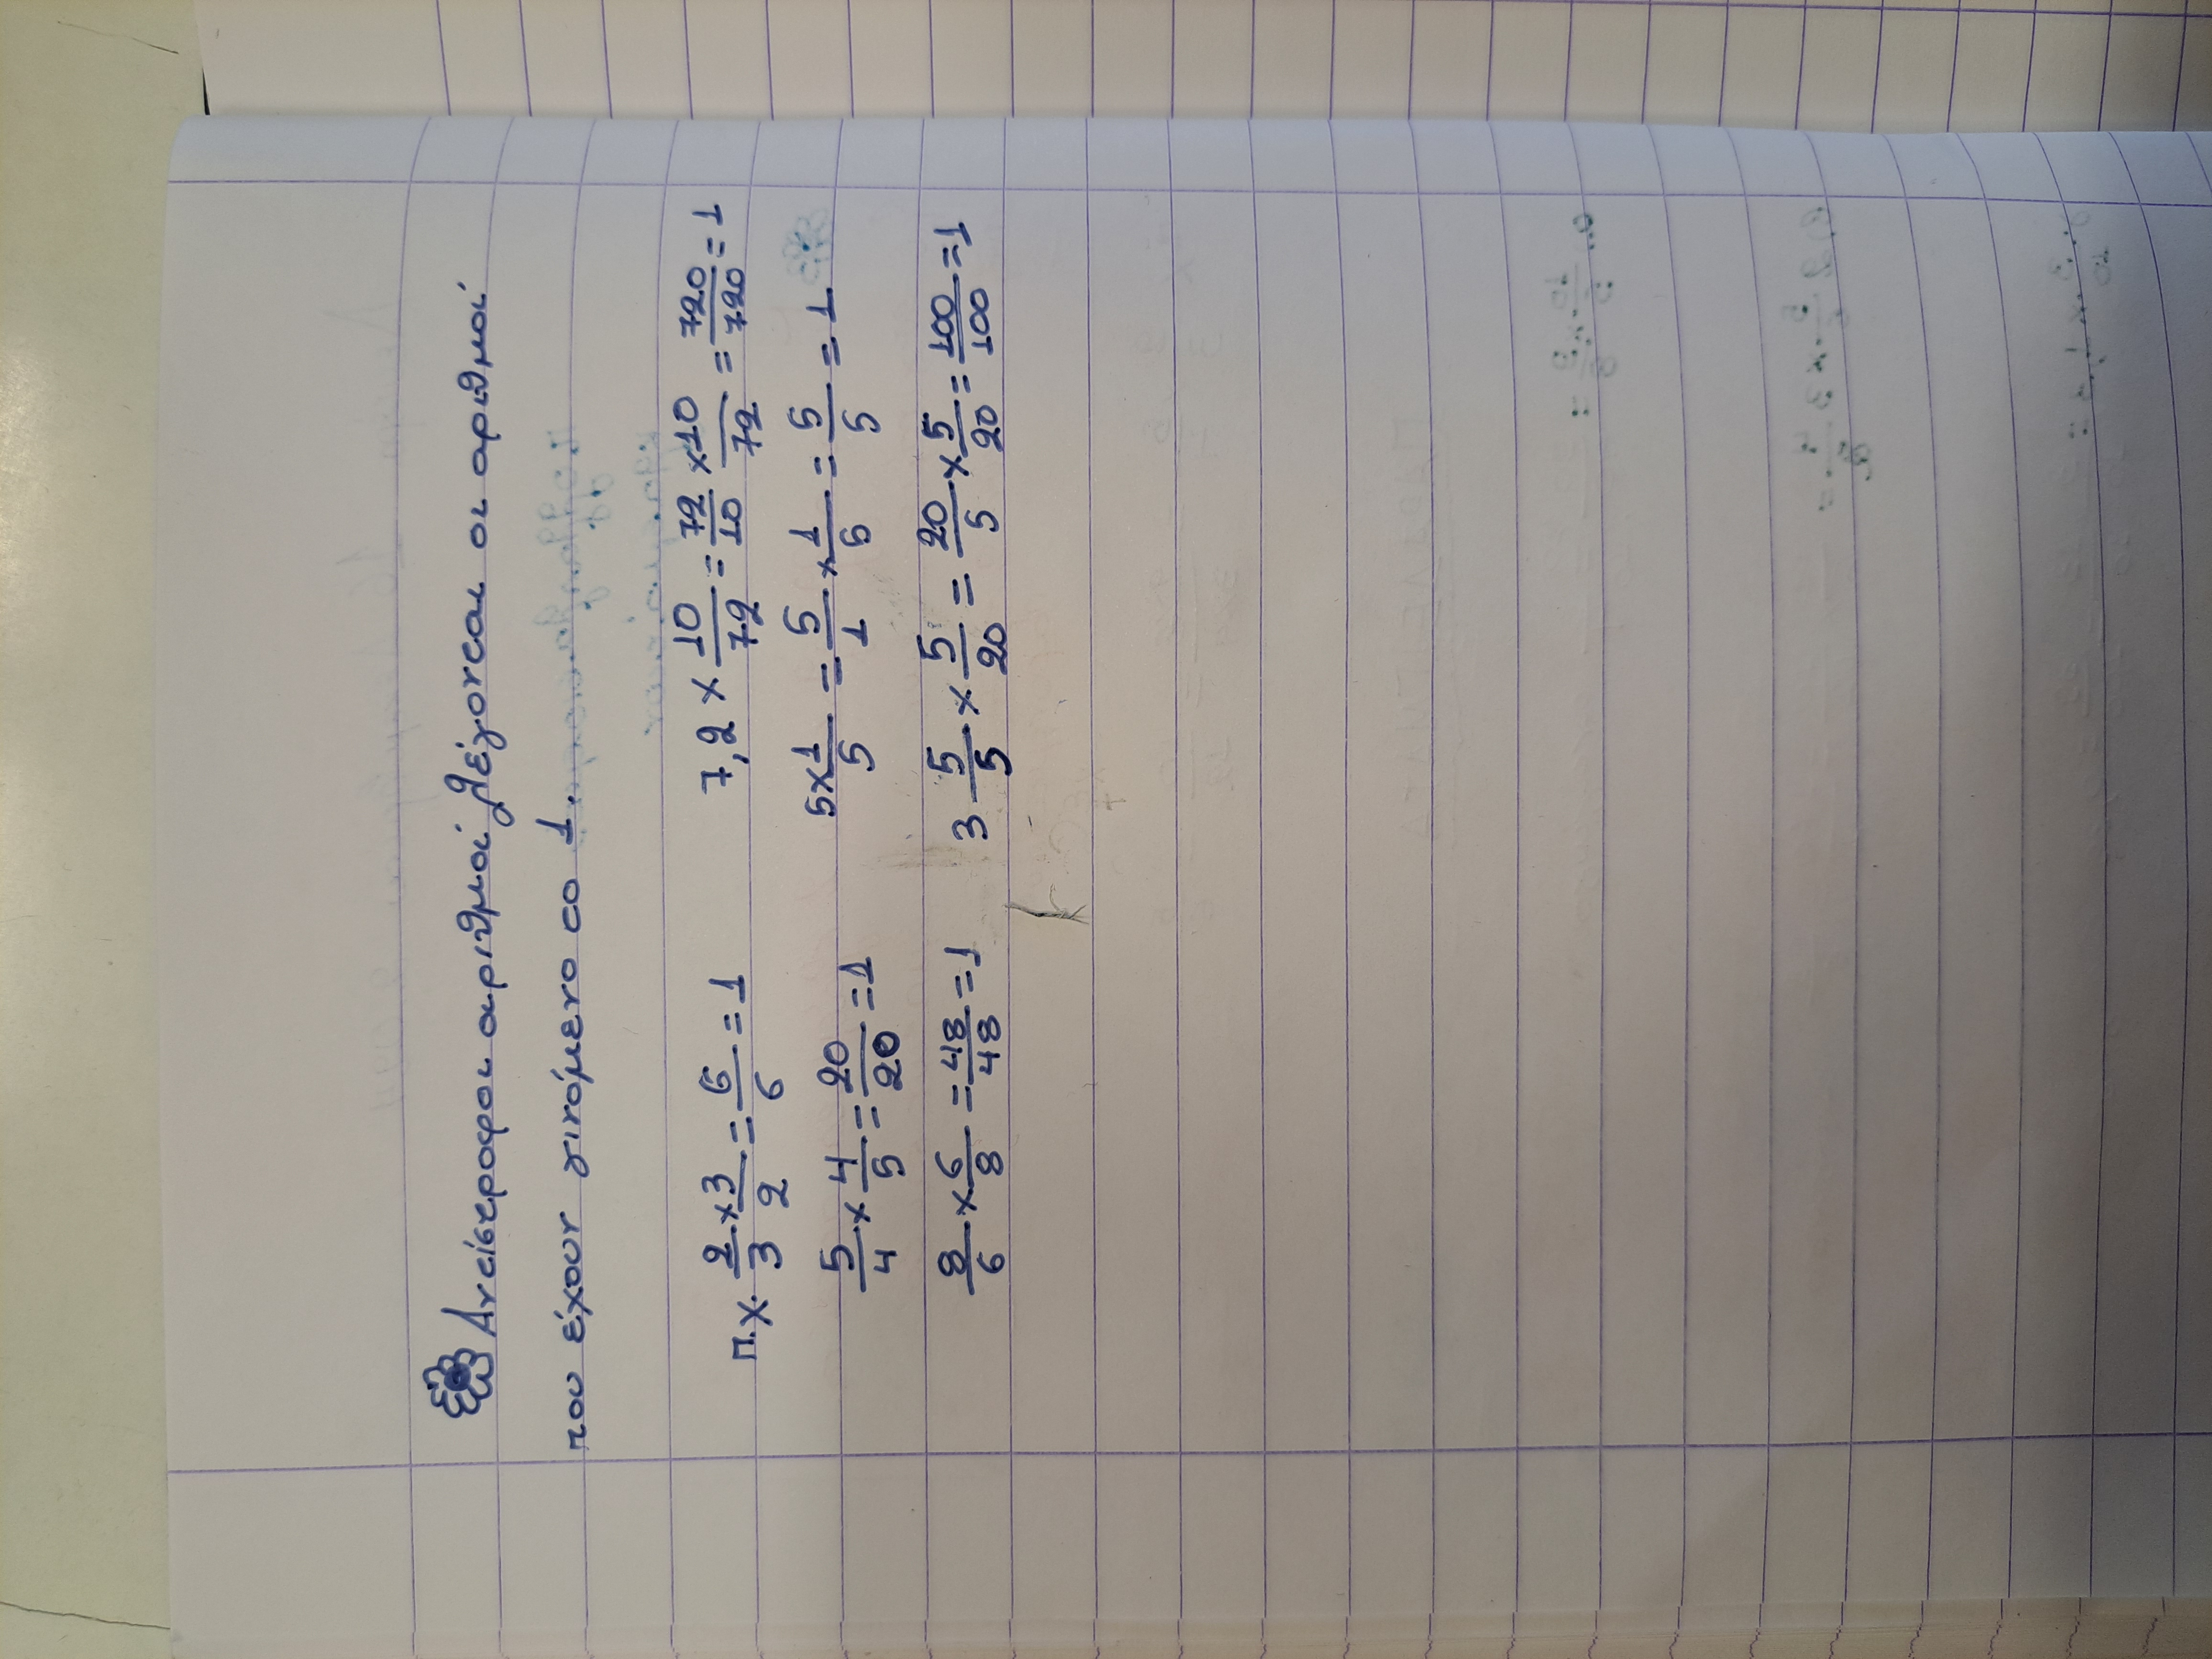 Αντίστροφοι αριθμοί λέγονται οι αριθμοί
που έχουν γινόμενο το 1.
π.χ. 2/3 × 3/2 = 6/6 = 1
7,2 × 10/72 = 72/10 × 10/72 = 720/720 = 1
5/4 × 4/5 = 20/20 = 1
5 × 1/5 = 5/1 × 1/5 = 5/5 = 1
8/6 × 6/8 = 48/48 = 1
3 5/5 × 5/20 = 20/5 × 5/20 = 100/100 = 1